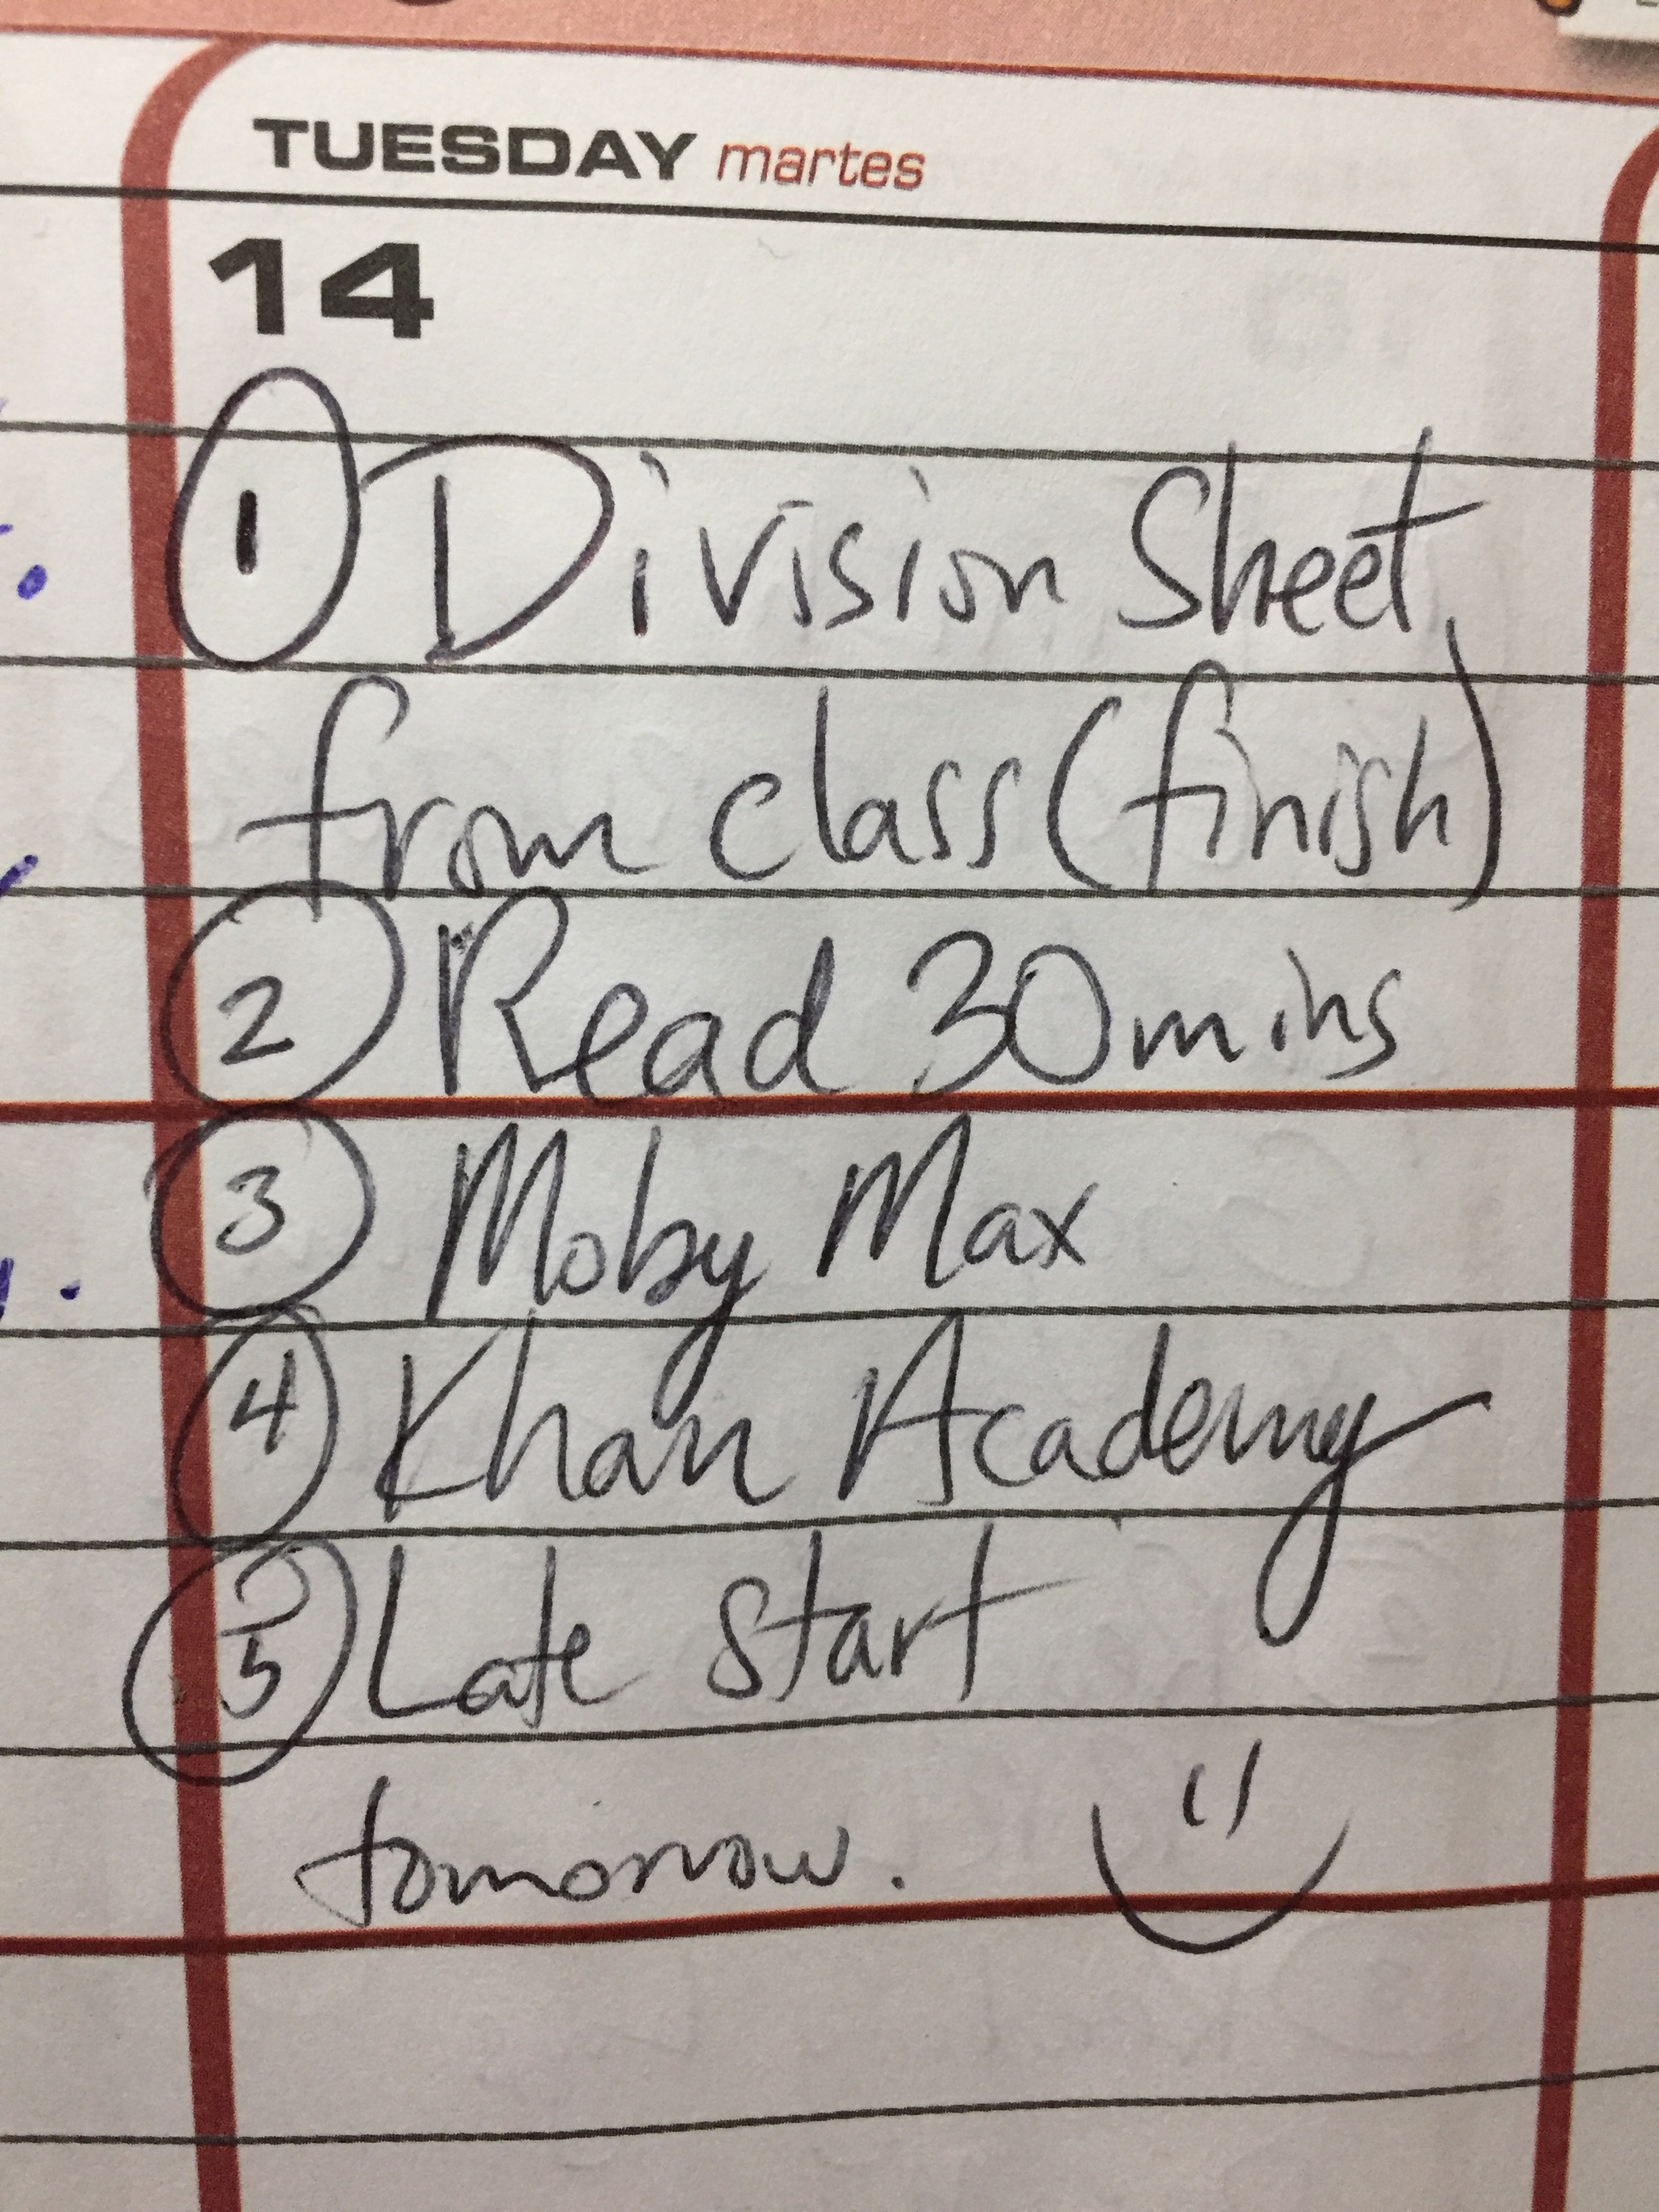 TUESDAY martes
14
① Division Sheet
from class (finish)
② Read 30 mins
③ Moby Max
④ Khan Academy
⑤ Late start
tomorrow.